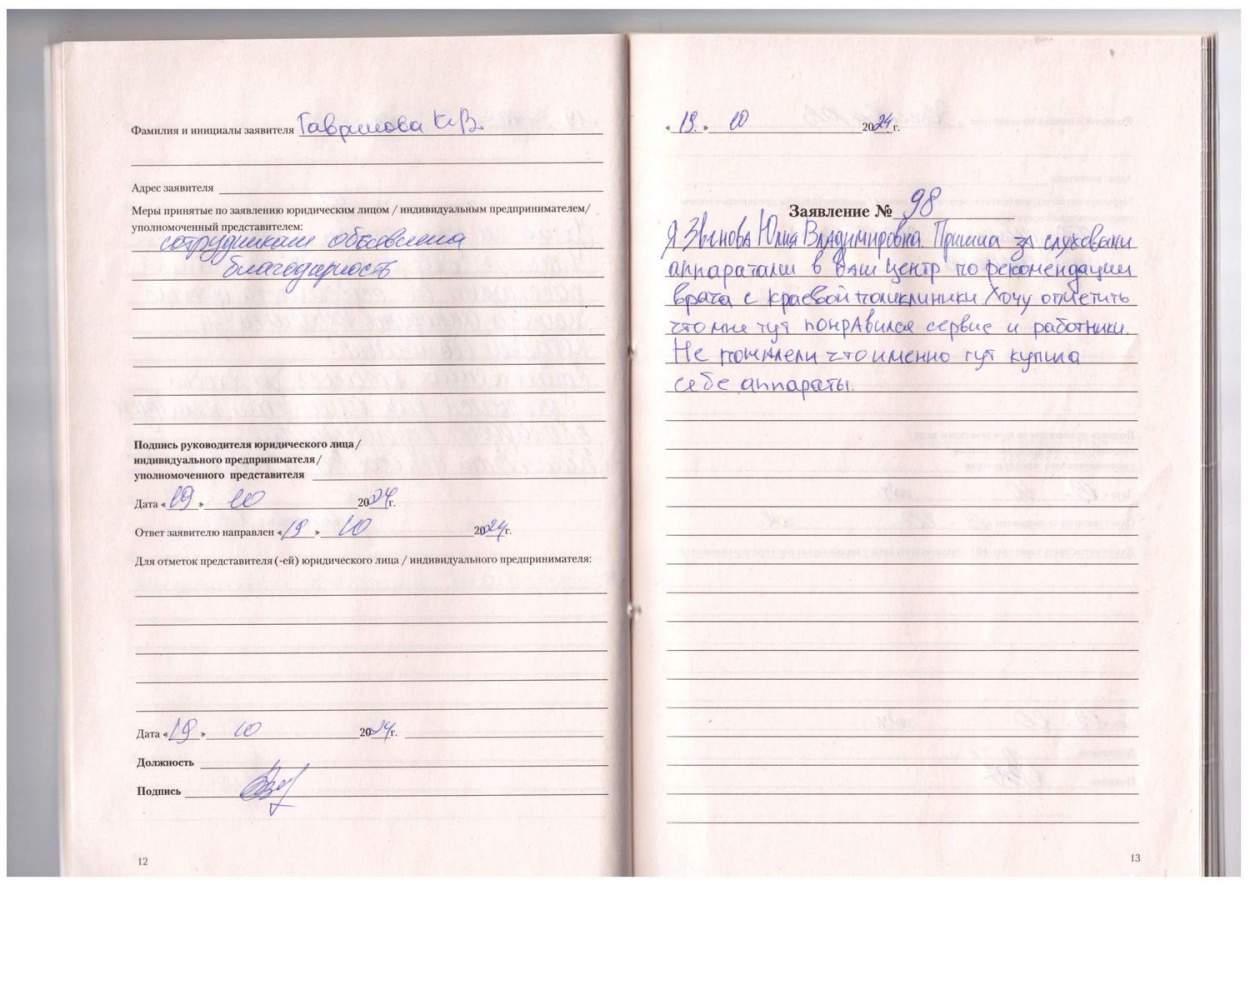 Фамилия и инициалы заявителя Гаврилова К.В.
Адрес заявителя
Меры принятые по заявлению юридическим лицом / индивидуальным предпринимателем/
уполномоченный представителем:
сотрудникам объявлена
благодарность
Подпись руководителя юридического лица/
индивидуального предпринимателя/
уполномоченного представителя
Дата «19» 10 2024г.
Ответ заявителю направлен «19» 10 2024г.
Для отметок представителя (-ей) юридического лица / индивидуального предпринимателя:
Дата «19» 10 2024г.
Должность
Подпись
12
«19.» 10 2024г.
Заявление № 98
Я Юлия Владимировна. Пришла за слуховыми
аппаратами в Ваш центр по рекомендации
врача с краевой поликлиники Хочу отметить
что мне тут понравился сервис и работники.
Не пожалели что именно тут купила
себе аппараты.
13